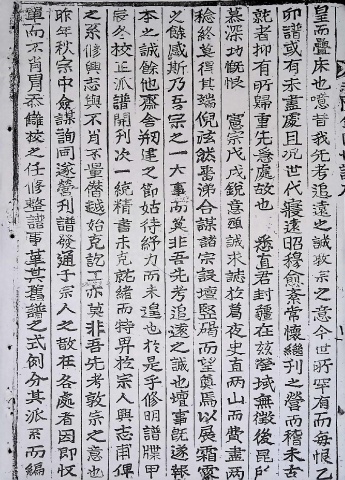 皇而疊床也噫昔我先考追遠之誠敦宗之意今世所罕有而每恨乙
卯譜或有未盡處且況世代寢遠昭穆愈紊常懷繼刊之營而稽未古
就者抑有所歸重先急處故也 悉直君封疆在玆塋域無徵後昆尸
慕深切慨恨 憲宗戊戌銳意頤誠求誌於葛夜史直兩山而費盡兩
稔終莫得其端倪泫然墨涕合謀諸宗設壇竪碣而望奠焉以展霜露
之餘感斯乃吾宗之一大事而莫非吾先考追遠之誠也壇事旣遂報
本之誠餘他齋舍刱建之節姑待紓力而未遑也於是乎修明譜牒甲
辰冬校正派譜開刊次一統精書未克就緖而特畀於宗人興志甫俾
之系修興志與不肖不量僭越始克訖工亦莫非吾先考敦宗之意也
昨年秋宗中僉謀詢同遂營刊譜發通子宗人之散在各處者因卽收
單而不肖冒忝讎校之任修整譜事葉其舊譜之式例分其派系而編